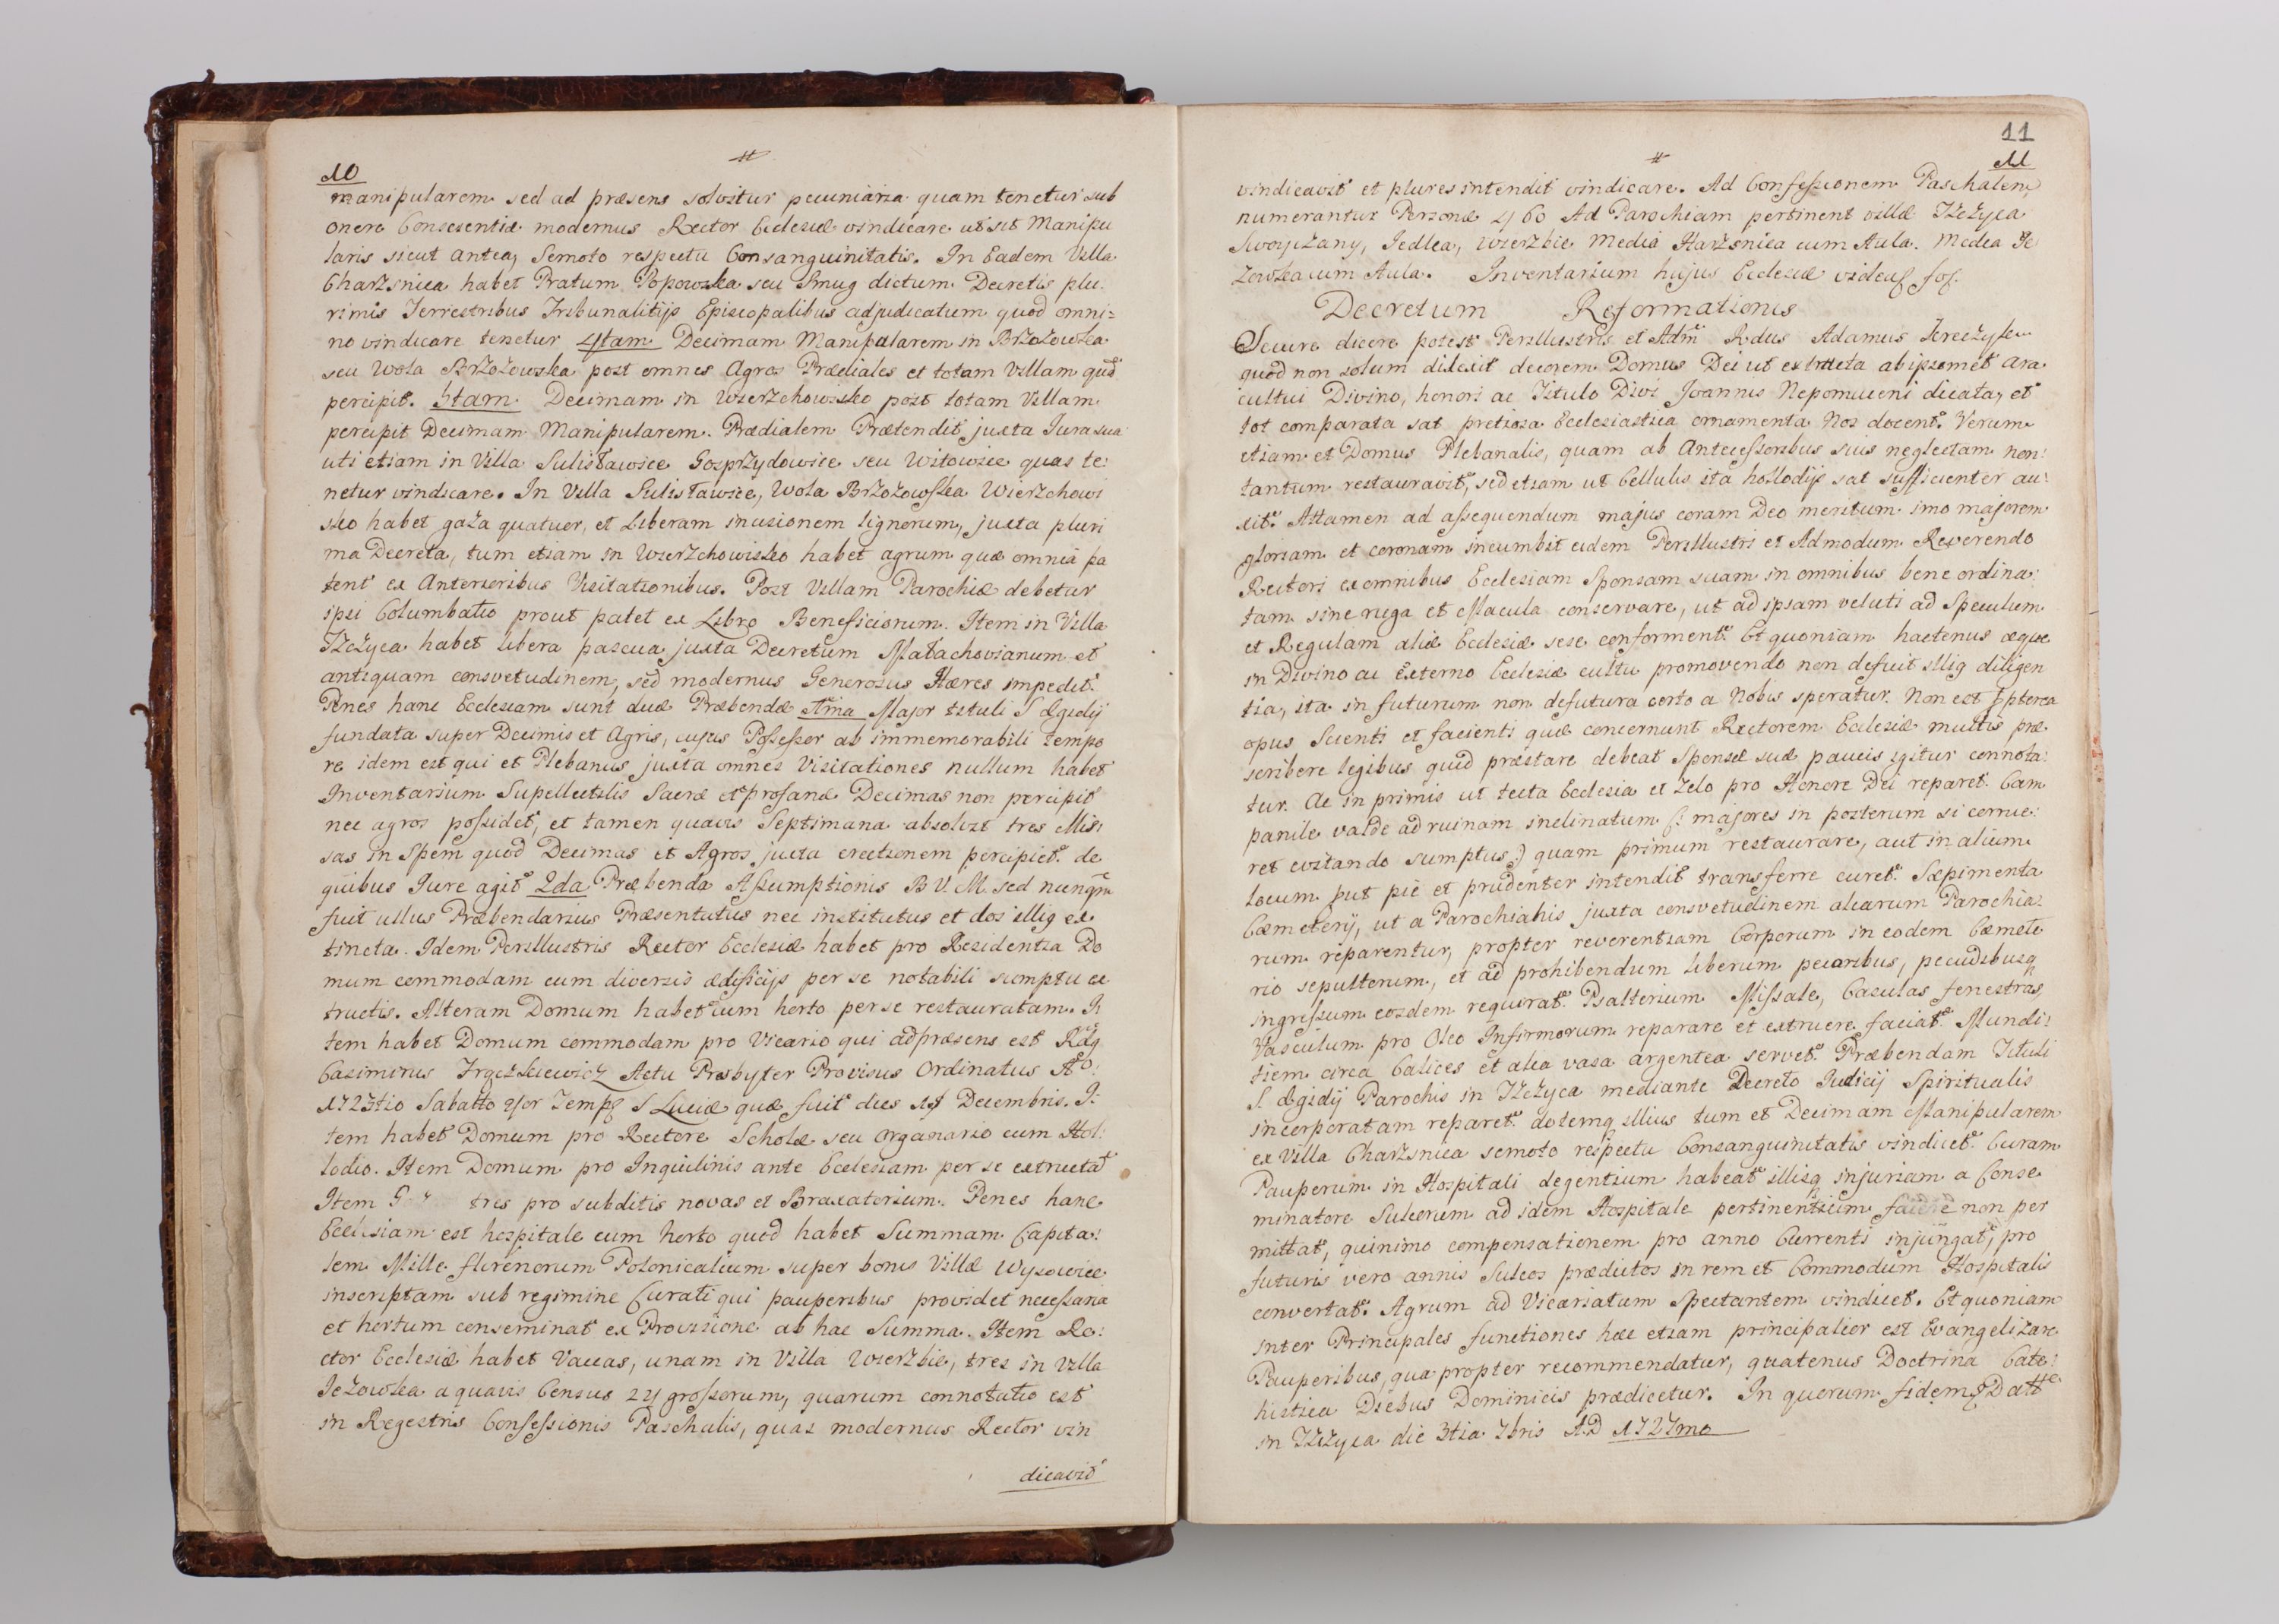 10
#
manipularem sed ad præsens solvitur pecuniaria quam tenetur sub
onere Conscientiæ modernus Rector Ecclesiæ vindicare ut sit Manipu
laris sicut antea, Semoto respectu Consanguinitatis. In Eadem Villa
Charzsnica habet Pratum Popowska seu Smug dictum Decretis plu
rimis Terrestribus Tribunalitijs Episcopalibus adjudicatum quod omni=
no vindicare tenetur 4tam Decimam Manipularem in Brzozowska
seu Wola Brzozowska post omnes Agros Prædiales et totam Villam qud
percipit. 5tam Decimam in Wierzchowisko post totam Villam
percipit Decimam Manipularem. Prædialem Prætendit juxta Jura sua
uti etiam in Villa Sulisławice Gosprzydowice seu Witowice quas te:
netur vindicare. In Villa Sulisławice, Wola Brzozowska Wierzchowi
sko habet gaza quatuor, et Liberam incisionem lignorum, juxta pluri
ma Decreta, tum etiam in Wierzchowisko habet agrum quæ omnia pa
tent ex Anterioribus Visitationibus. Post Villam Parochiæ debetur
ipsi Columbatio prout patet ex Libro Beneficiorum. Item in Villa
Tczyca habet libera pascua juxta Decretum Małachovianum et
antiquam consvetudinem, sed modernus Generosus Hæres impedit.
Penes hanc Ecclesiam sunt duæ Præbendæ 1ma Major tituli S Ægidij
fundata super Decimis et Agris, cujus Possessor ab immemorabili tempo
re idem est qui et Plebanus juxta omnes Visitationes nullum habet
Inventarium Supellectilis Sacræ et profanæ Decimas non percipit
nec agros possidet, et tamen quavis Septimana absolvit tres Mis:
sas in Spem quod Decimas et Agros juxta erectionem percipiet de
quibus Jure agit 2da Præbenda Assumptionis B V. M. sed nunqm
fuit ullus Præbendarius Præsentatus nec institutus et dos illig ex
tincta. Idem Perillustris Rector Ecclesiæ habet pro Residentia Do
mum commodam cum diversis ædificijs per se notabili sumptu ex
tructis. Alteram Domum habet cum horto per se restauratam. I
tem habet Domum commodam pro Vicario qui ad præsens est Rdg
Casimirus Actu Presbyter Provisus Ordinatus Ao
1723tio Sabatto 4or Temp S Luciæ quæ fuit dies 18 Decembris. I:
tem habet Domum pro Rectore Scholæ seu Organario cum Hol:
lodio. Item Domum pro Inquilinis ante Ecclesiam per se extructa
Item tres pro subditis novas et Braxatorium. Penes hanc
Ecclesiam est hospitale cum horto quod habet Summam Capita:
lem Mille florenorum Polonicalium super bonis Villæ Wysowice
inscriptam sub regimine Curati qui pauperibus providet necessaria
et hortum conseminat ex Provisione ab hac Summa. Item Re:
ctor Ecclesiæ habet Vaccas, unam in Villa Wierzbie, tres in Villa
Jezowska a quavis Census 24 grossorum, quarum connotatio est
in Regestris Confessionis Paschalis, quas modernus Rector vin
dicavit
11
11
#
vindicavit et plures intendit vindicare. Ad Confessionem Paschalem
numerantur Personæ 460 Ad Parochiam pertinent villæ Tczyca
Swoyczany, Jedlca, Wierzbie Media Harzsnica cum Aula. Media Je
zowska cum Aula. Inventarium hujus Ecclesiæ videas fol.
Decretum Reformationis
Secure dicere potest Perillustris et Adm Rdus Adamus
quod non solum dilexit decorem Domus Dei ut extructa ab ipsomet ara
cultui Divino, honori ac Titulo Divi Joannis Nepomuceni dicata, et
tot comparata sat pretiosa Ecclesiastica ornamenta Nos docent. Verum
etiam et Domus Plebanalis, quam ab Antecessoribus suis neglectam non:
tantum restauravit, sed etiam ut Cellulis ita hollodijs sat sufficienter au:
xit. Attamen ad assequendum majus coram Deo meritum imo majorem
gloriam et coronam incumbit eidem Perillustri et Admodum Reverendo
Rectori ex omnibus Ecclesiam Sponsam suam in omnibus bene ordina:
tam sine ruga et Macula conservare, ut ad ipsam veluti ad Speculum
et Regulam aliæ Ecclesiæ sese conforment. Et quoniam hactenus æque
in Divino ac Externo Ecclesiæ cultu promovendo non defuit illig diligen
tia, ita in futurum non defutura certo a Nobis speratur. Non est pterea
opus Scienti et facienti quæ concernunt Rectorem Ecclesiæ multis præ
scribere legibus quid præstare debeat Sponsæ suæ paucis igitur connota:
tur. Ac in primis ut tecta Ecclesia ex zelo pro Honore Dei reparet. Cam
panile valde ad ruinam inclinatum (: majores in posterum si corrue:
ret evitando sumptus :) quam primum restaurare, aut in alium
locum put pie et prudenter intendit transferre curet. Sæpimenta
Cæmeterij, ut a Parochianis juxta consvetudinem aliarum Parochia:
rum reparentur, propter reverentiam Corporum in eodem Cæmete
rio sepultorum, et ad prohibendum liberum pecoribus, pecudibusq
ingressum eosdem requirat. Psalterium Missale, Casulas fenestras,
Vasculum pro Oleo Infirmorum reparare et extruere faciat. Mundi:
tiem circa Calices et alia vasa argentea servet. Præbendam Tituli
S Ægidij Parochis in Tczyca mediante Decreto Judicij Spiritualis
incorporatam reparet. dotemq illius tum et Decimam Manipularem
ex Villa Charzsnica semoto respectu Consanguinitatis vindicet. Curam
Pauperum in Hospitali degentium habeat illisq injuriam a Conse
minatore Sulcorum ad idem Hospitale pertinentium facere non per
mittat, quinimo compensationem pro anno Currenti injungat, pro
futuris vero annis Sulcos prædictos in rem et Commodum Hospitalis
convertat. Agrum ad Vicariatum Spectantem vindicet. Et quoniam
inter Principales functiones hæc etiam principalior est Evangelizare
Pauperibus, qua propter recommendatur, quatenus Doctrina Cate:
histica Diebus Dominicis prædicetur. In quorum fidem Datt
in Tczyca die 3tia 7bris A.D 1727mo